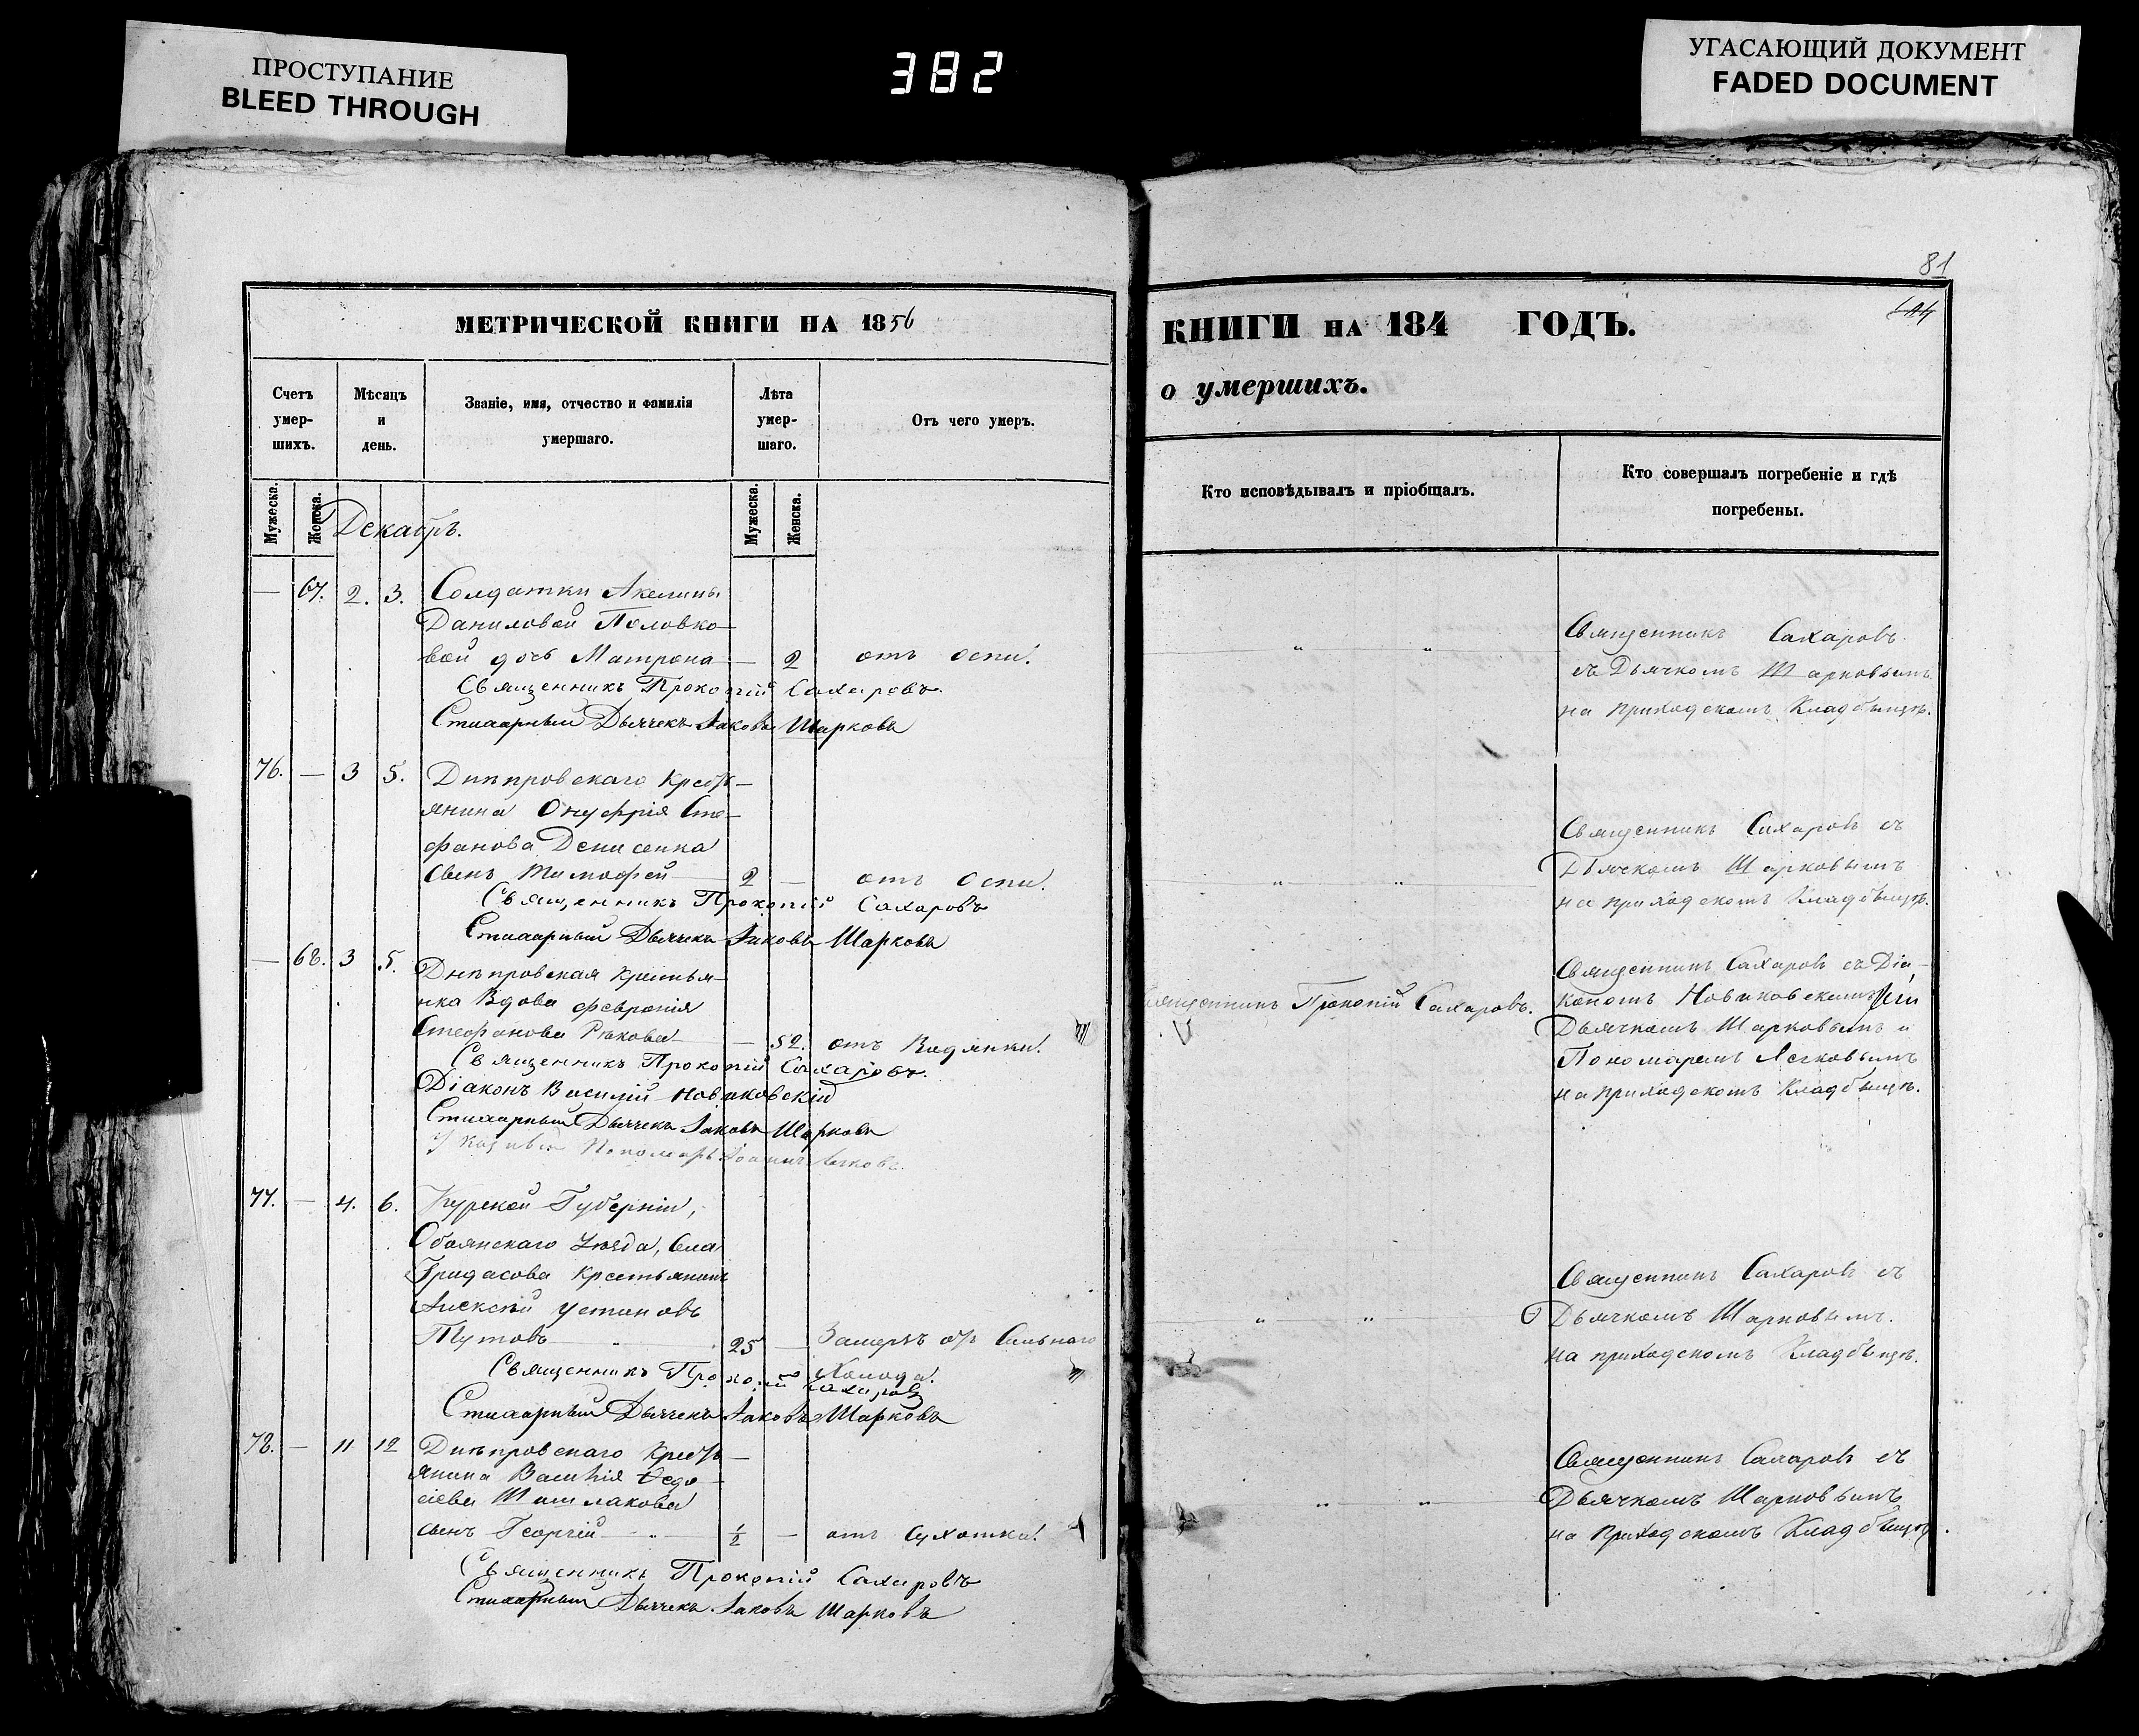 ПРОСТУПАНИЕ
BLEED THROUGH
382
УГАСАЮЩИЙ ДОКУМЕНТ
FADED DOCUMENT
МЕТРИЧЕСКОЙ КНИГИ НА 1856
Счетъ умер-шихъ.
Мѣсяцъ и день.
Званіе, имя, отчество и фамилія умершаго.
Лѣта умер-шаго.
Отъ чего умеръ.
Мужеска.
Женска.
Мужеска.
Женска.
Декабрь.
— 67. 2. 3. Солдатки Акелины
Даниловой Половко-
вой дочь Матрона — 2 отъ оспи.
Священникъ Прокопій Сахаровъ.
Стихарный Дьячекъ Іаковъ Шарковъ
76. — 3 5. Днѣпровскаго Крестъ-
янина Онуфрія Сте-
фанова Денисенка
сынъ Тимофей 2 — отъ Оспи.
Священникъ Прокопій Сахаровъ
Стихарный Дьячекъ Іаковъ Шарковъ
— 68. 3 5. Днѣпровская Крестья-
нка Вдова Февронія
Стефанова Рѣкова — 52. отъ Водянки.
Священникъ Прокопій Сахаровъ.
Діаконъ Василій Новиковскій
Стихарный Дьячекъ Іаковъ Шарковъ
Указный Пономарь Іоаннъ
77. — 4. 6. Курской Губерніи,
Обоянскаго Уѣзда, Села
Гридасова Крестьянинъ
Алексѣй Устиновъ
Тутовъ 25 — Замерзъ отъ Сильнаго
Холода.
Священникъ Прокопій Сахаровъ
Стихарный Дьячекъ Іаковъ Шарковъ
78. — 11 12 Днѣпровскаго Крестъ-
янина Василія Ѳедо-
сіева
сынъ Георгій 1/2 — отъ Сухотки.
Священникъ Прокопій Сахаровъ
Стихарный Дьячекъ Іаковъ Шарковъ
81
КНИГИ НА 184 ГОДЪ.
о умершихъ.
Кто исповѣдывалъ и пріобщалъ.
Кто совершалъ погребеніе и гдѣ погребены.
Священникъ Сахаровъ
съ Дьячкомъ Шарковымъ
на приходскомъ Кладбищѣ.
Священникъ Сахаровъ съ
Дьячкомъ Шарковымъ
на приходскомъ Кладбищѣ.
Священникъ Прокопій Сахаровъ.
Священникъ Сахаровъ съ Діа-
кономъ Новиковскимъ
Дьячкомъ Шарковымъ и
Пономаремъ
на приходскомъ Кладбищѣ.
Священникъ Сахаровъ съ
Дьячкомъ Шарковымъ.
на приходскомъ Кладбищѣ.
Священникъ Сахаровъ съ
Дьячкомъ Шарковымъ
на приходскомъ Кладбищѣ.